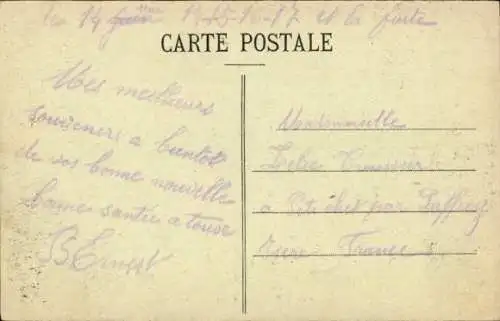 le 14 juin 1925-16-17 et la forte
CARTE POSTALE
Mes meilleurs
souvenirs a bientot
de vos bonne nouvelle
bonne santée a tous
B Ernest
Mademoiselle
a par Laffrey
Isere France